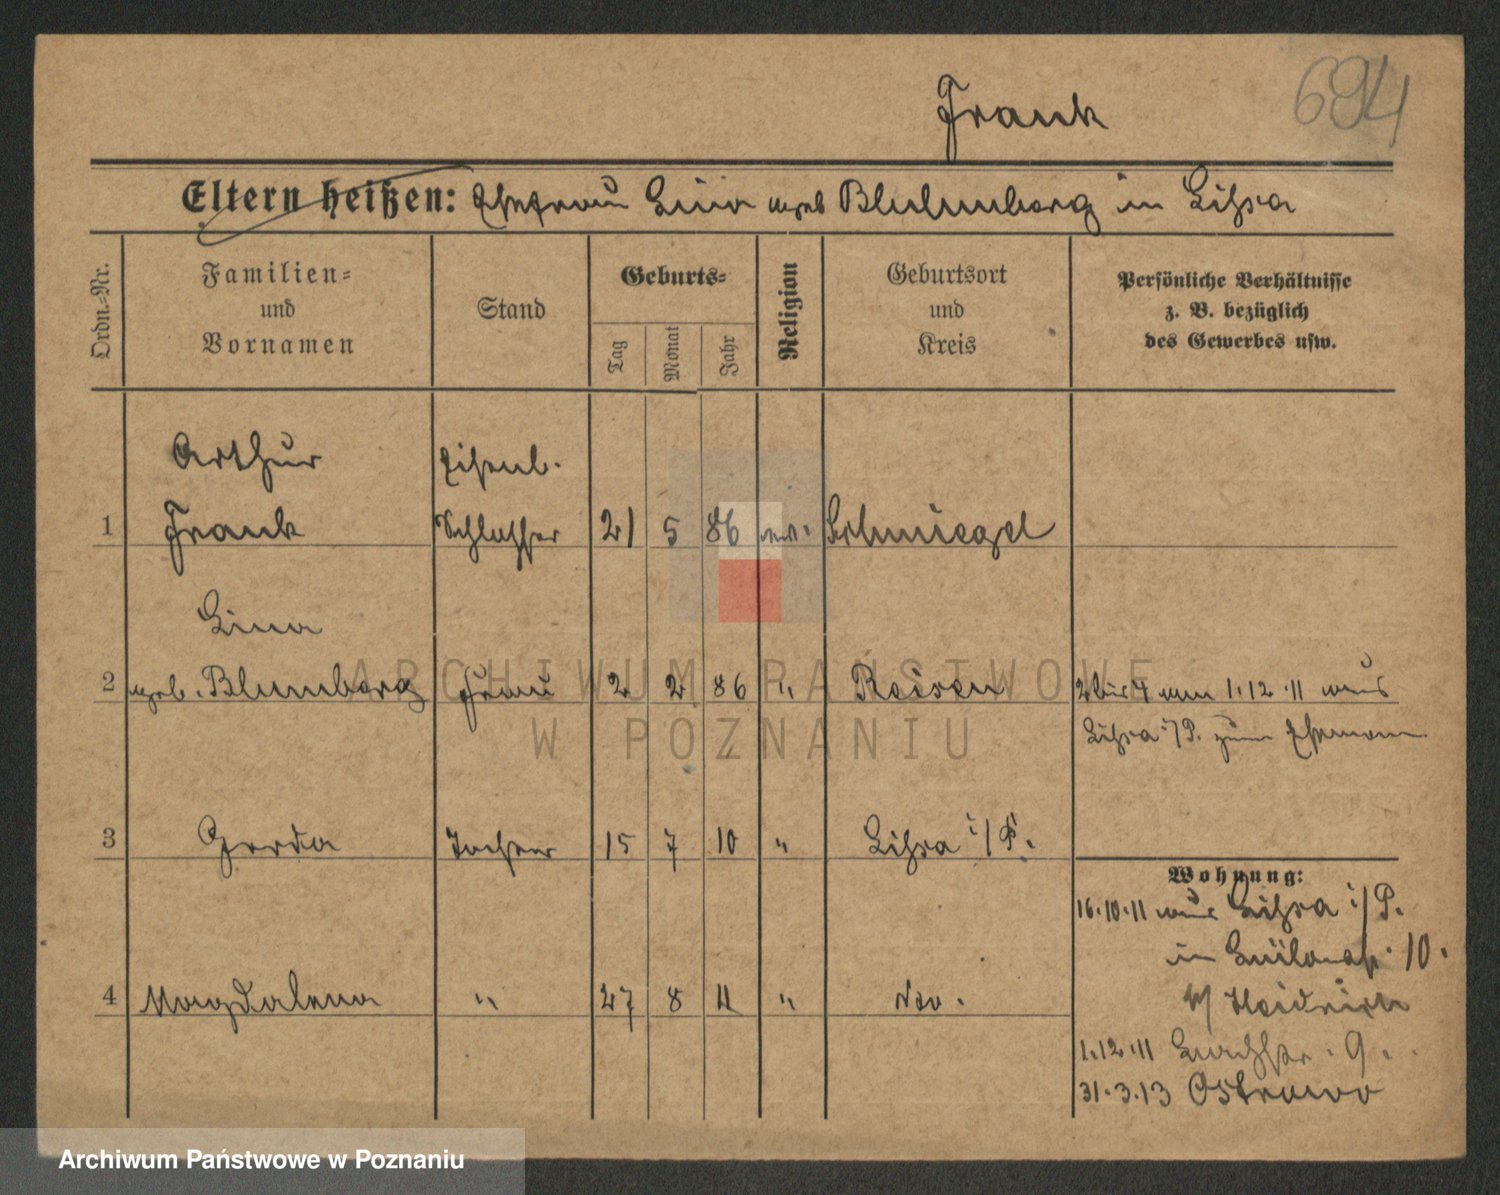 694
Frank
Eltern heißen: Ehefrau Lina geb Blumberg in Lissa
Ordn.=Nr.
Familien=
und
Vornamen
Stand
Geburts=
Tag
Monat
Jahr
Religion
Geburtsort
und
Kreis
Persönliche Verhältnisse
z. B. bezüglich
des Gewerbes usw.
Arthur Eisenb.
1 Frank Schlosser 21 5 86 ev. Schmiegel
Lina
2 geb. Blumberg Frau 2 2 86 " Reisen 2 bis 4 am 1.12.11 aus
Lissa i/P. zum Ehemann
3 Gerda Tochter 15 7 10 " Lissa i/P.
Wohnung:
16.10.11 aus Lissa i/P.
in 10.
4 Magdalena " 27 8 11 " do.
b/ Heidrich
1.12.11 9.
31.3.13 Ostrowo
ARCHIWUM PAŃSTWOWE
W POZNANIU
Archiwum Państwowe w Poznaniu